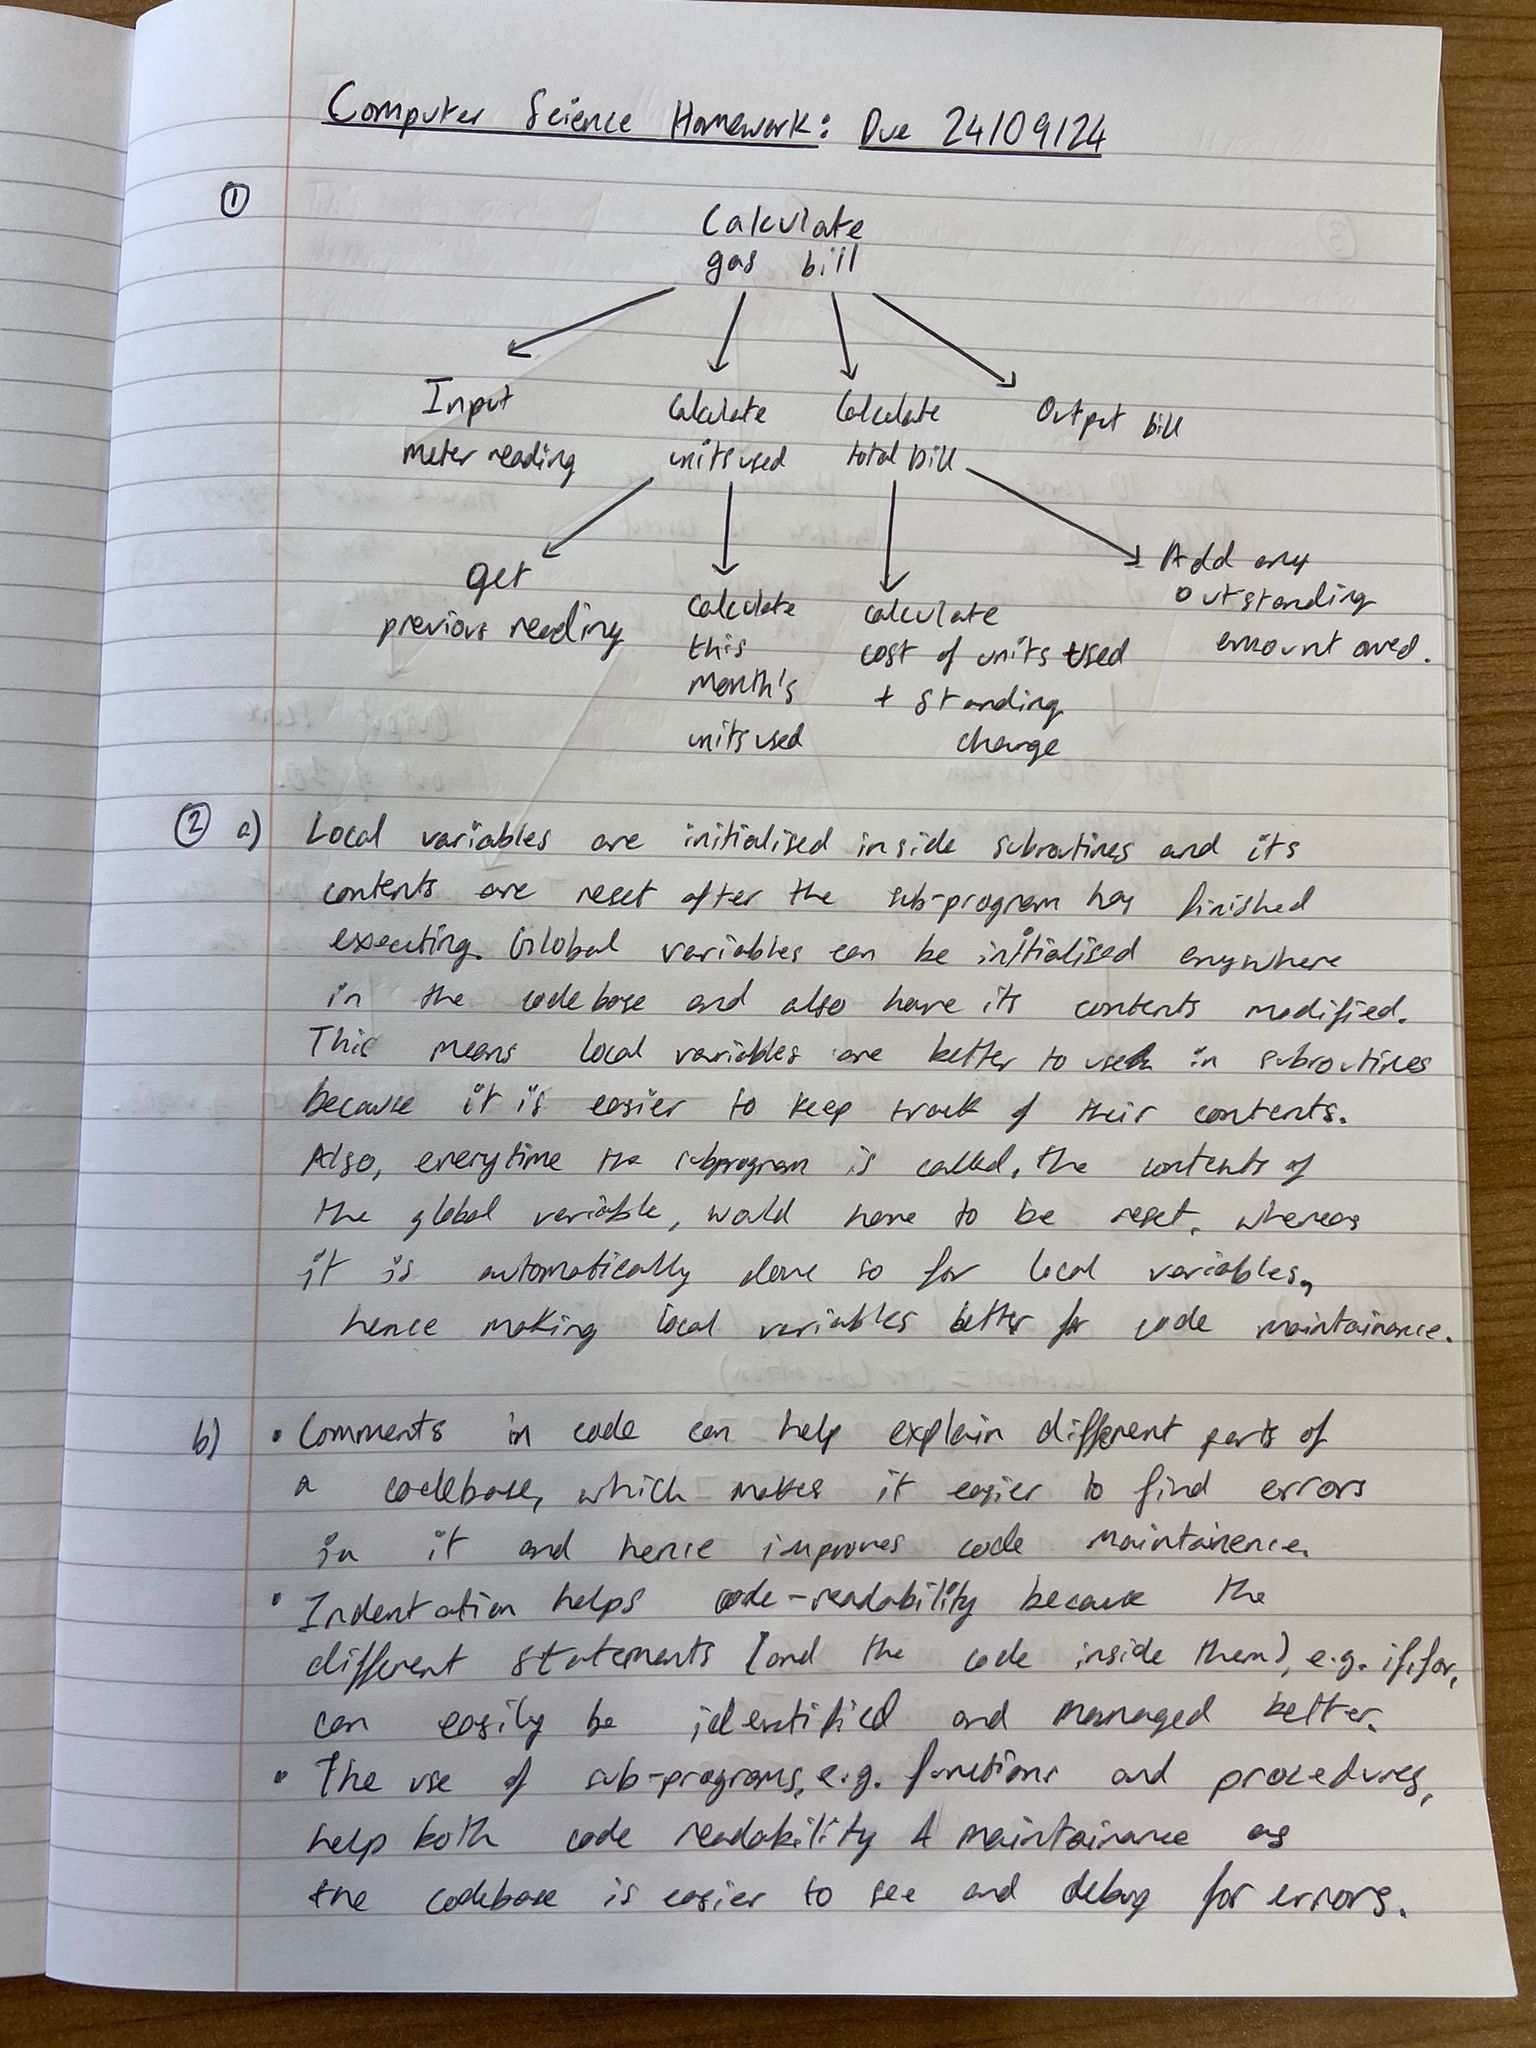 Computer Science Homework: Due 24/09/24
①
Calculate
gas bill
Input
meter reading
Calculate
units used
Calculate
total bill
Output bill
get
previous reading
calculate
this
month's
units used
calculate
cost of units used
+ standing
charge
Add any
outstanding
amount owed.
② a) Local variables are initialised inside subroutines and its
contents are reset after the sub-program has finished
executing. Global variables can be initialised anywhere
in the codebase and also have its contents modified.
This means local variables are better to use in subroutines
because it is easier to keep track of their contents.
Also, everytime the subprogram is called, the contents of
the global variable, would have to be reset, whereas
it is automatically done so for local variables,
hence making local variables better for code maintainance.
b) • Comments in code can help explain different parts of
a codebase, which makes it easier to find errors
in it and hence improves code maintainence.
• Indentation helps code-readability because the
different statements (and the code inside them), e.g. if, for,
can easily be identified and managed better.
• The use of sub-programs, e.g. functions and procedures,
help both code readability & maintainance as
the codebase is easier to see and debug for errors.